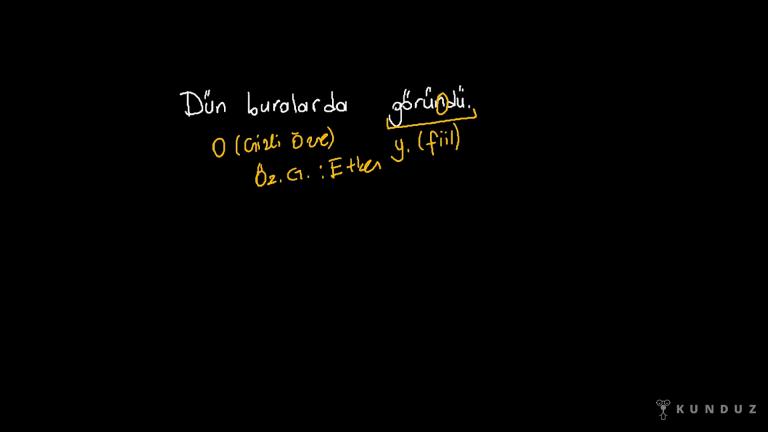 Dün buralarda göründü.
O (Gizli Özne) y. (fiil)
Öz. G. : Etken
KUNDUZ